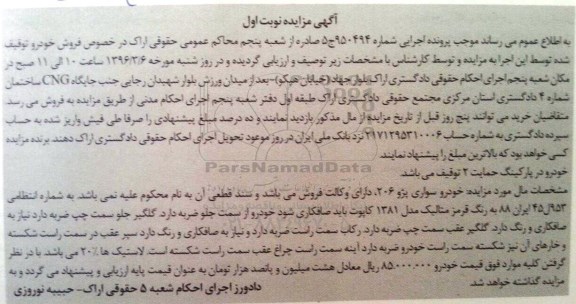 آگهی مزایده نوبت اول
به اطلاع عموم می رساند موجب پرونده اجرایی شماره ۹۵۰۴۹۴ج۵ صادره از شعبه پنجم محاکم عمومی حقوقی اراک در خصوص فروش خودرو توقیف
شده توسط این اجرا به مزایده و توسط کارشناس با مشخصات زیر توصیف و ارزیابی گردیده و در روز شنبه مورخه ۱۳۹۶/۳/۶ ساعت ۱۰ الی ۱۱ صبح در
مکان شعبه پنجم اجرای احکام حقوقی دادگستری اراک بلوار جهاد (خیابان هپکو)-بعد از میدان ورزش بلوار شهیدان رجایی جنب جایگاه CNG ساختمان
شماره ۴ دادگستری استان مرکزی مجتمع حقوقی دادگستری اراک طبقه اول دفتر شعبه پنجم اجرای احکام مدنی از طریق مزایده به فروش می رسد.
متقاضیان خرید می توانند پنج روز قبل از تاریخ مزایده از مال مذکور بازدید نمایند و ده درصد مبلغ پیشنهادی را صرفا طی فیش واریز شده به حساب
سپرده دادگستری به شماره حساب ۲۱۷۱۲۹۵۳۱۰۰۰۶ نزد بانک ملی ایران در روز موعود تحویل اجرای احکام حقوقی دادگستری اراک دهند. برنده مزایده
کسی خواهد بود که بالاترین مبلغ را پیشنهاد نمایند.
خودرو در پارکینگ حمایت ۲ توقیف می باشد.
مشخصات مال مورد مزایده: خودرو سواری پژو ۲۰۶، دارای وکالت فروش می باشد و سند قطعی آن به نام محکوم علیه نمی باشد. به شماره انتظامی
۹۵۳ل۴۵ ایران ۸۸ به رنگ قرمز متالیک مدل ۱۳۸۱ کاپوت باید صافکاری شود خودرو از سمت جلو ضربه دارد. گلگیر جلو سمت چپ ضربه دارد نیاز به
صافکاری و رنگ دارد. گلگیر عقب سمت چپ ضربه دارد. رکاب سمت راست ضربه دارد و نیاز به صافکاری و رنگ دارد سپر عقب در سمت راست شکسته
و خارهای آن نیز شکسته سمت راست خودرو ضربه دارد آینه سمت راست چراغ عقب سمت راست شکسته است. لاستیک ها ۲۰٪ می باشد. با در نظر
گرفتن کلیه موارد فوق قیمت خودرو ۸۵.۰۰۰.۰۰۰ ریال معادل هشت میلیون و پانصد هزار تومان به عنوان قیمت پایه ارزیابی و پیشنهاد می گردد و به
مزایده گذاشته خواهد شد.
دادورز اجرای احکام شعبه ۵ حقوقی اراک- حبیبه نوروزی
ParsNamadData